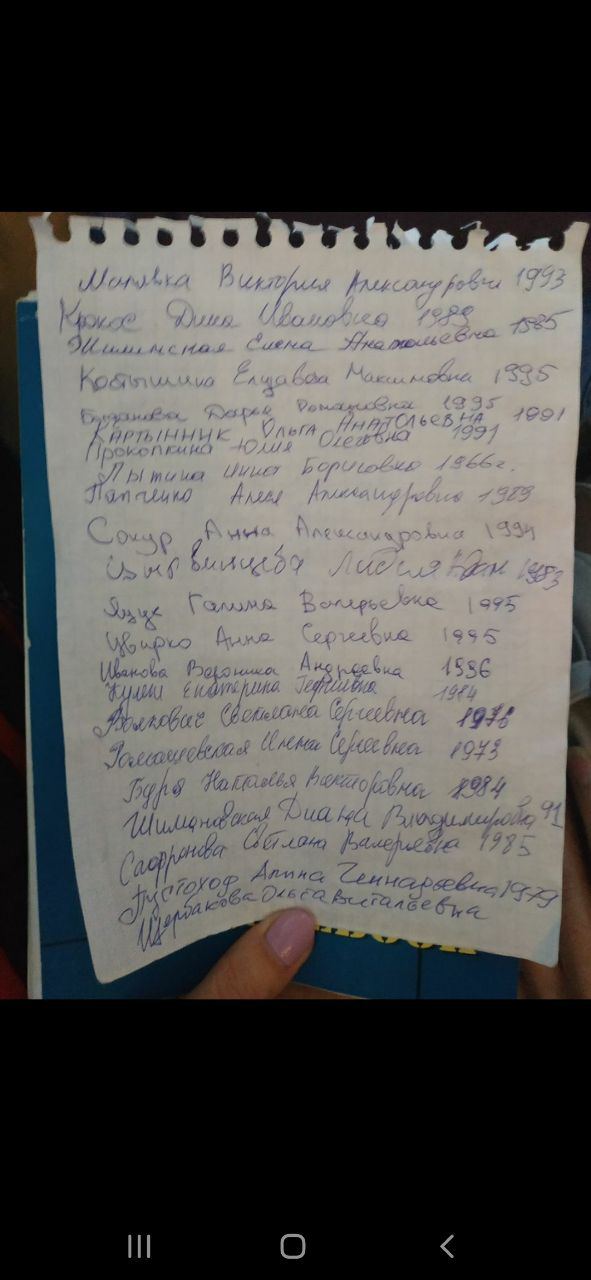 Виктория Александровна 1993
Крокос Дина Ивановна 1989
Жилинская Елена Анатольевна 1985
Максимовна 1995
Дарья 1995
КАРТЫННИК ОЛЬГА АНАТОЛЬЕВНА 1991
Прокопкина Юлия Олеговна 1991
Инна Борисовна 1966г.
Папченко Алеся Александровна 1989
Сокур Анна Александровна 1994
1983
Яцук Галина Валерьевна 1995
Цвирко Анна Сергеевна 1995
Иванова Вероника Андреевна 1996
Екатерина 1984
Волкович Светлана Сергеевна
Инна Сергеевна 1973
Буря Наталья Викторовна 1984
Шимановская Диана Владимировна 91
Сафронова Светлана Валерьевна 1985
Пустоход Алина Геннадьевна 1979
Щербакова Ольга Витальевна